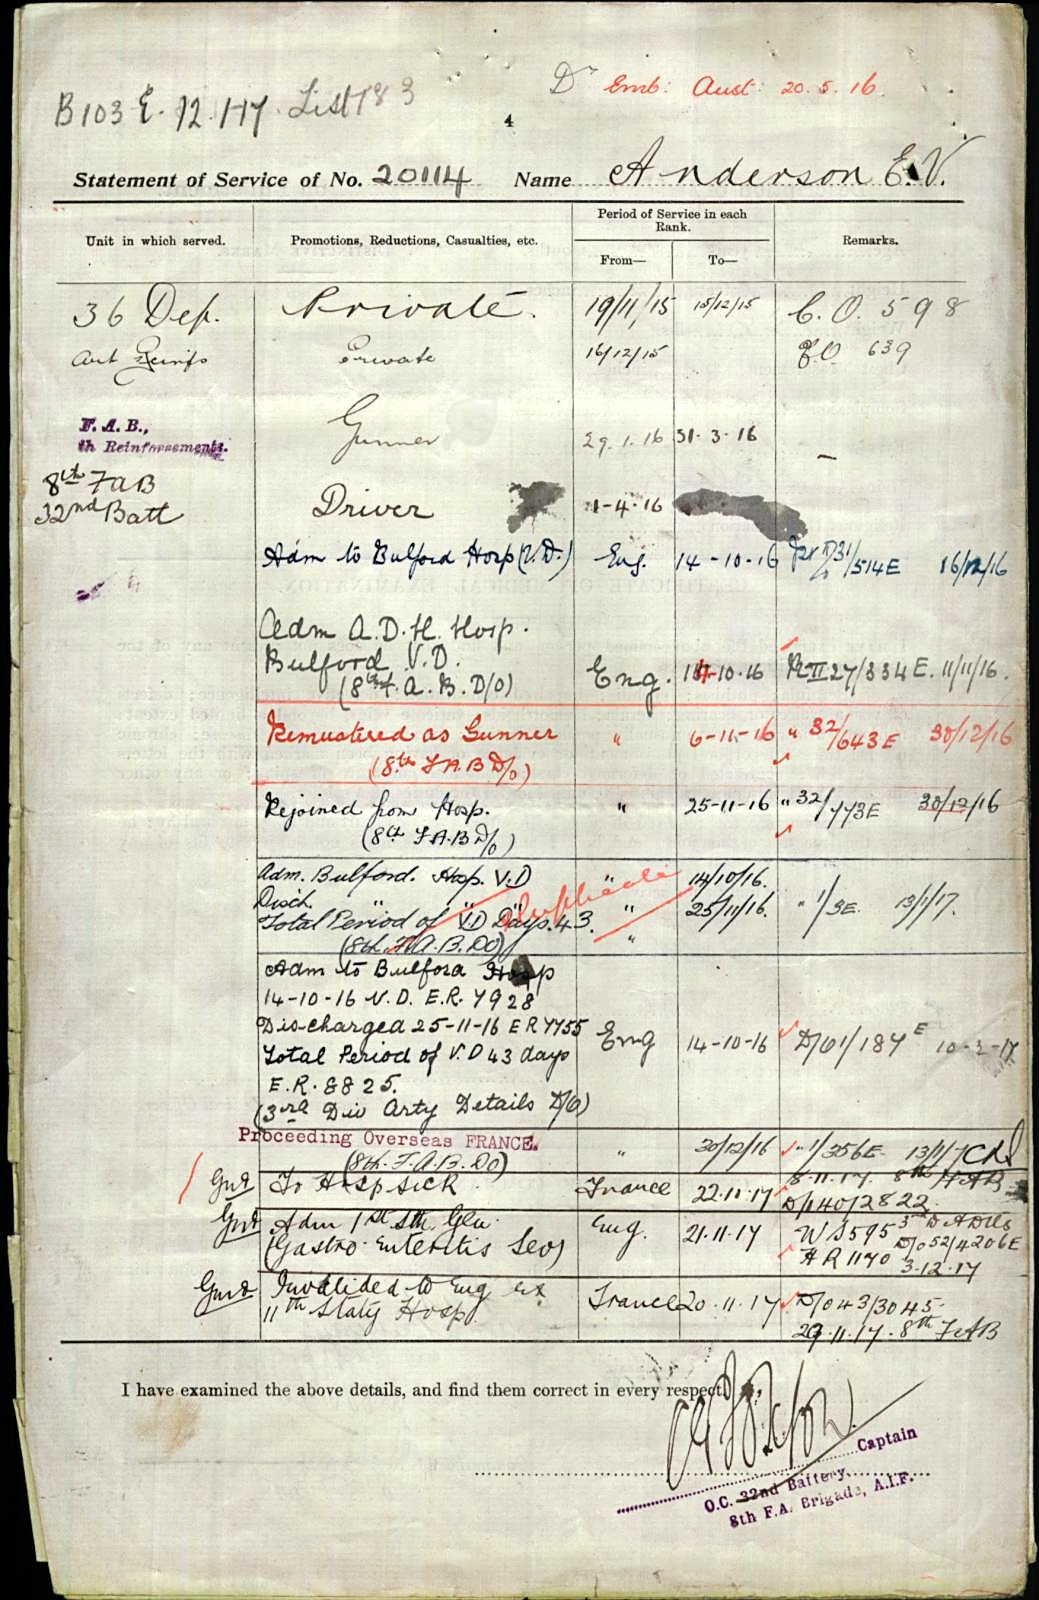 B103 E. 12.1.17. List 183
Dr Emb: Aust: 20.5.16.
4
Statement of Service of No. 20114 Name Anderson E.V.
Unit in which served. Promotions, Reductions, Casualties, etc. Period of Service in each Rank. From— To— Remarks.
36 Dep. Private. 19/11/15 15/12/15 C.O. 598
Art Reinfs Private 16/12/15 C.O. 639
F. A. B.,
th Reinforcements.
Gunner 29.1.16 31.3.16
8th FAB
32nd Batt
Driver 1-4-16
Adm to Bulford Hosp (V.D.) Eng. 14-10-16 31/514E 16/12/16
Adm A.D.H. Hosp.
Bulford V.D.
(8th F.A.B. D/O) Eng. 14-10-16 Pt II 27/334E. 11/11/16.
Remustered as Gunner " 6-11-16 " 32/643E 30/12/16
(8th F.A.B D/O)
Rejoined from Hosp. " 25-11-16 " 32/773E 30/12/16
(8th F.A.B D/O)
Adm. Bulford. Hosp. V.D " 14/10/16.
Disch. " " " 25/11/16. " 1/3E. 13/1/17.
Total Period of V.D Days. 43. "
(8th. F.A.B. DO)
Duplicate
Adm to Bulford Hosp
14-10-16 V.D. E.R. 7928
Discharged 25-11-16 ER 7755
Total Period of V.D 43 days Eng 14-10-16 D/O1/187E 10-3-17
E.R. 8825.
(3rd Div Arty Details D/O)
Proceeding Overseas FRANCE. " 30/12/16 " 1/356E 13/1/17
(8th. F.A.B. DO)
Gnr To Hosp sick France 22.11.17 8.11.17. 8th FAB
D/140/2822
Gnr Adm 1st Sth. Gen.
(Gastro-Enteritis Sev) Eng. 21.11.17 WS595 D/O52/4206E
HR 1170 3.12.17
Gnr Invalided to Eng ex
11th Staty Hosp. France 20.11.17 D/O43/3045
29.11.17. 8th FAB
I have examined the above details, and find them correct in every respect.
Captain
O.C. 32nd Battery,
8th F.A. Brigade, A.I.F.